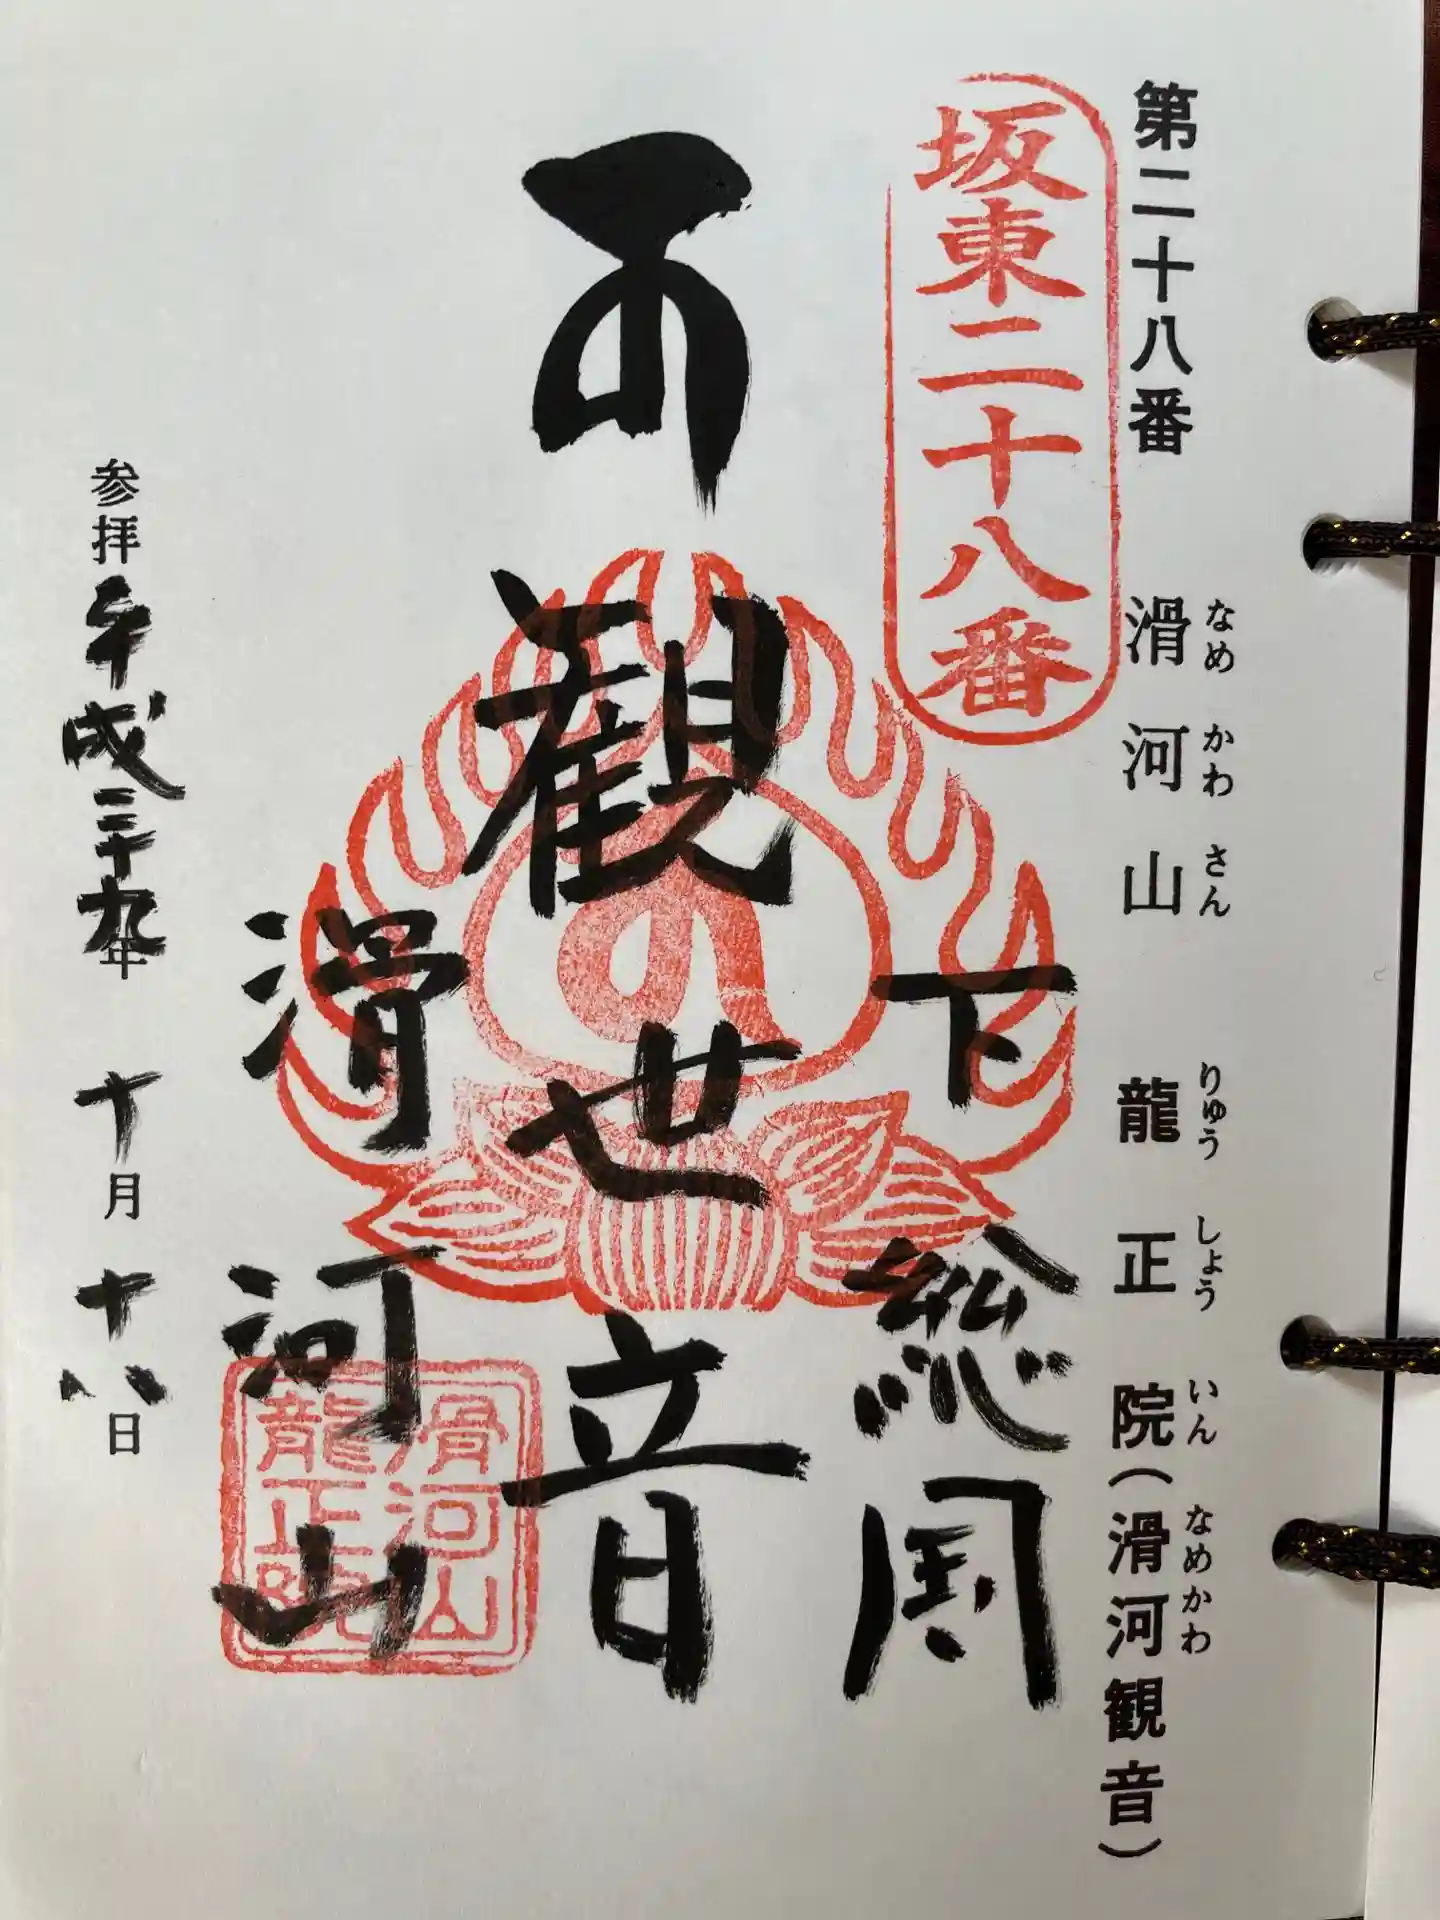 第二十八番 滑河山 龍正院(滑河観音)
なめ かわ さん りゅう しょう いん なめかわ
坂東二十八番
下総国
観世音
滑河山
滑河山
龍正院
参拝平成二十九年 十月 十八日